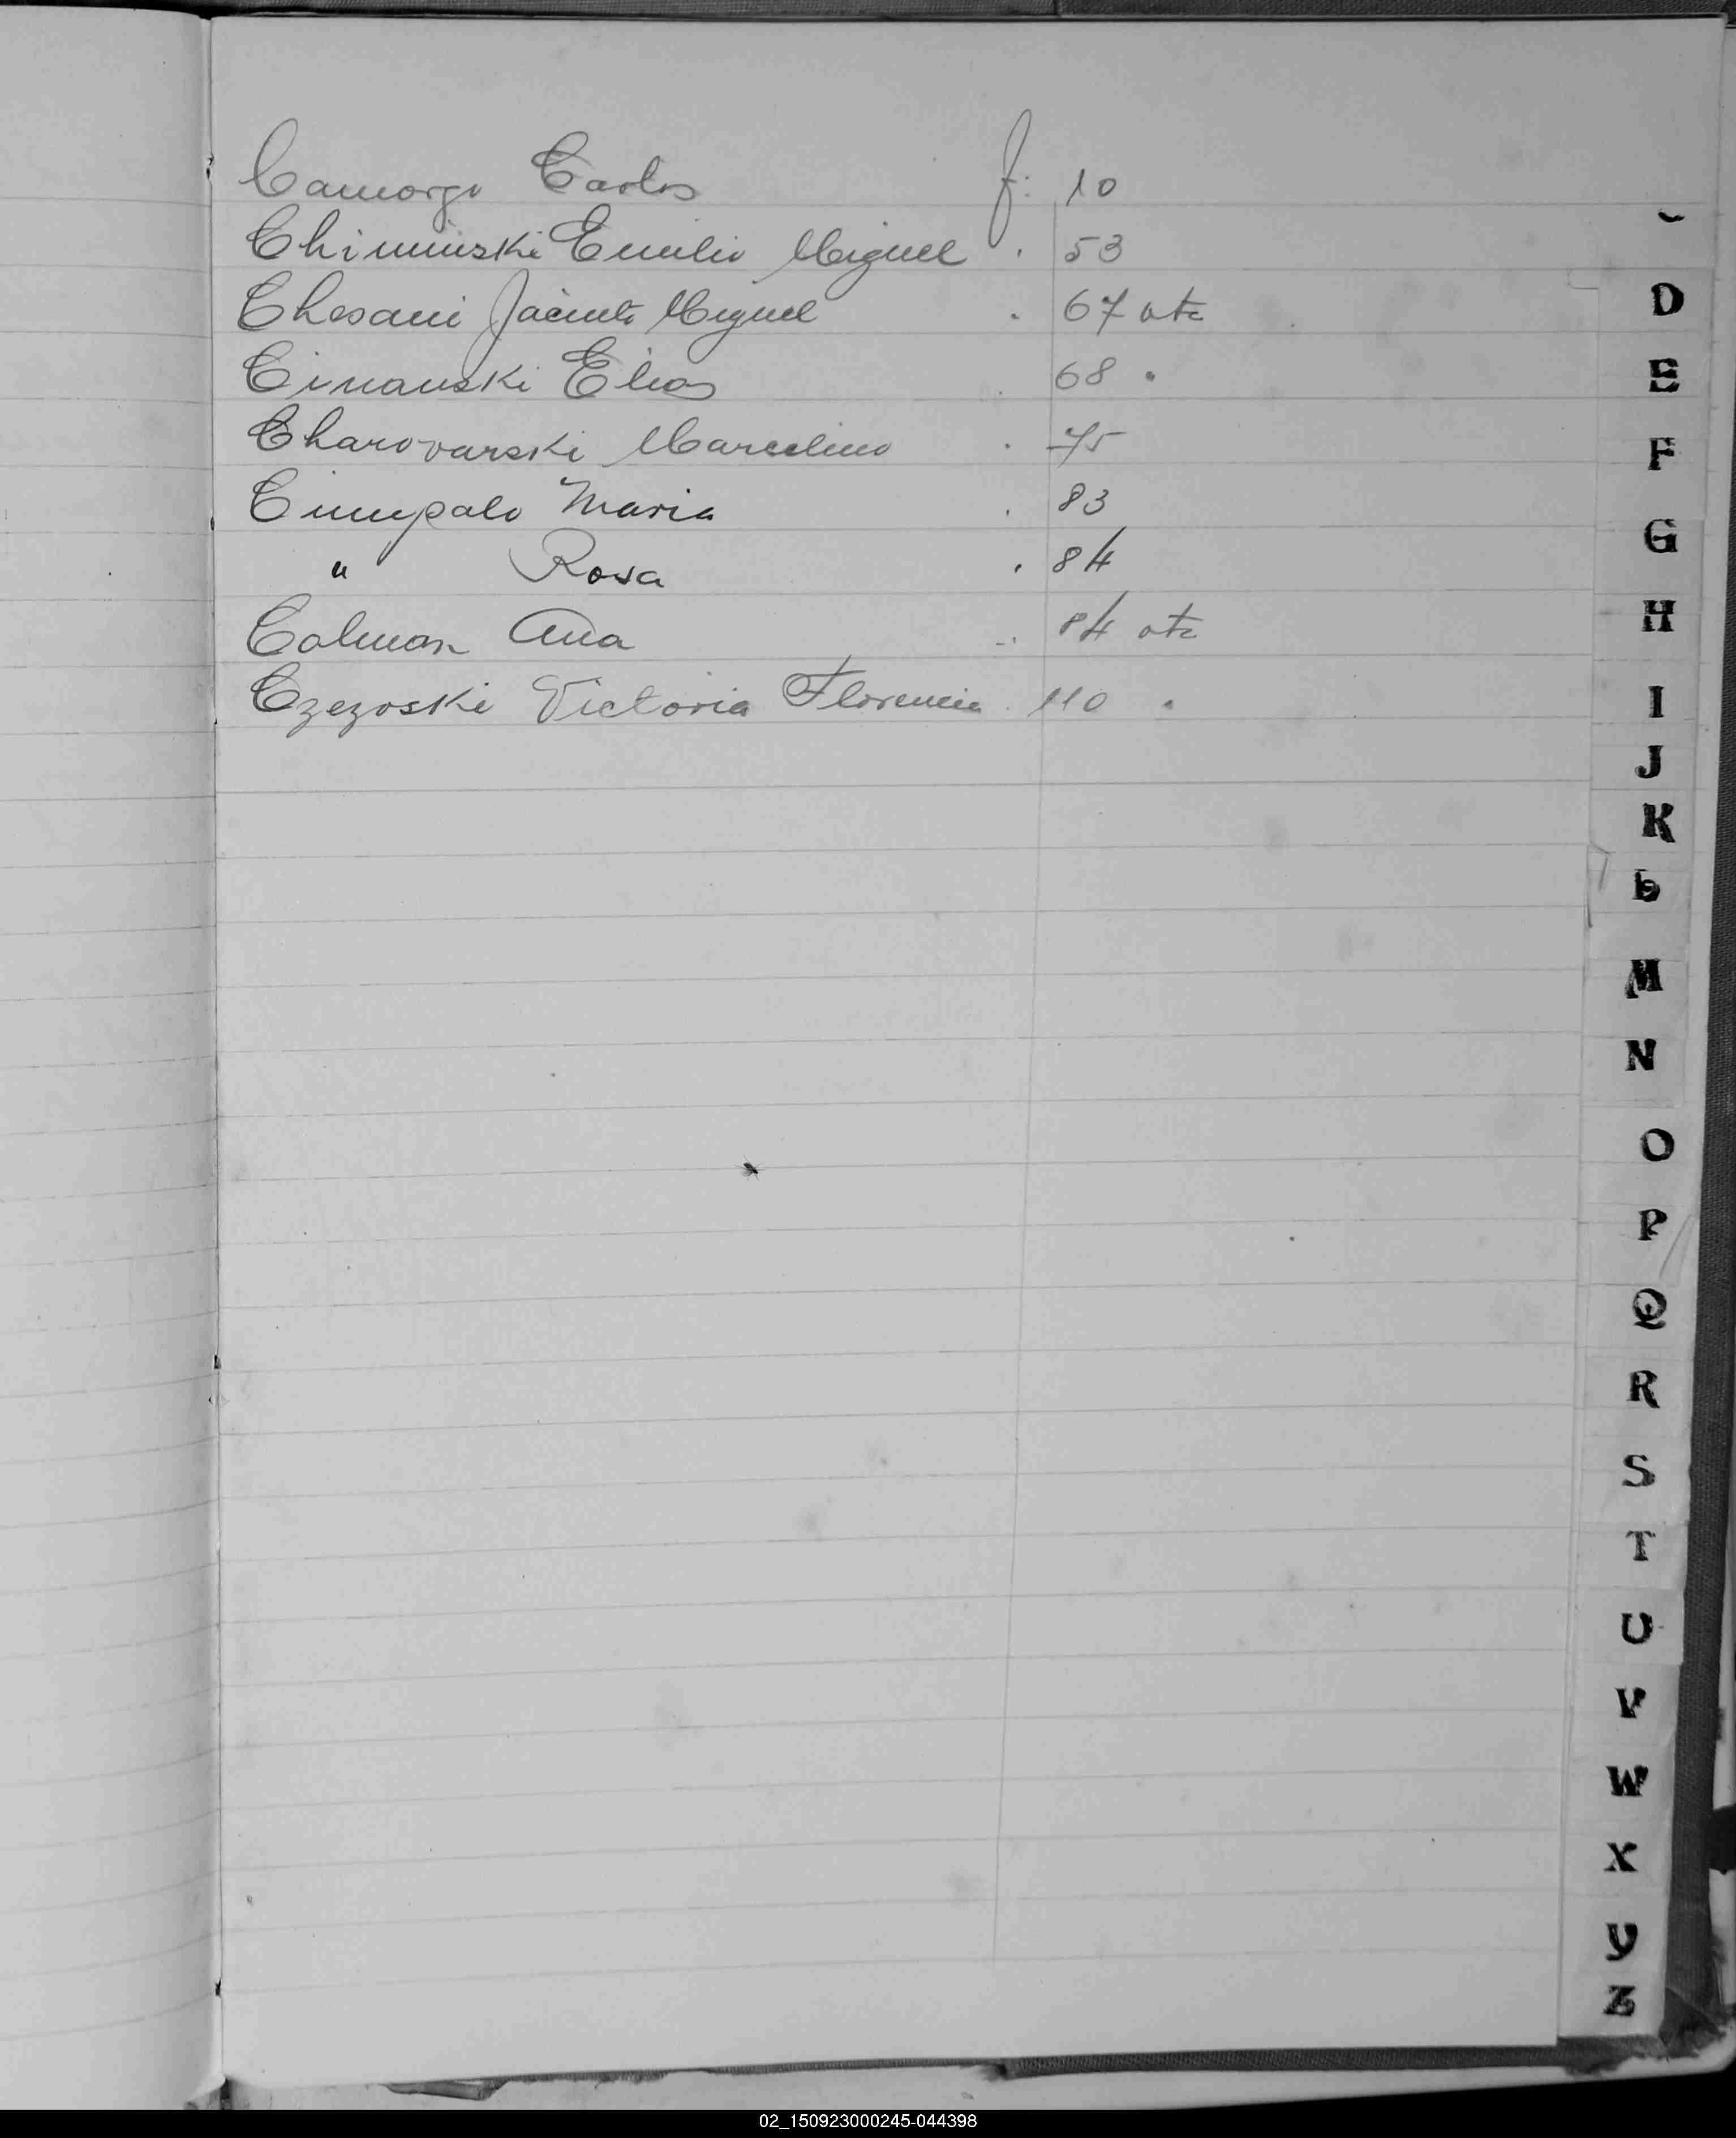 Camorgo Carlos f: 10
Chiminski Emilio Miguel . 53
Chesani Jacinto Miguel . 67 vta
Cinanski Elias . 68 "
Charovarski Marcelino . 75
Cimepalo Maria . 83
" Rosa . 84
Colman Ana . 84 vta
Czezoski Victoria Florencia . 110 "
D
E
F
G
H
I
J
K
L
M
N
O
P
Q
R
S
T
U
V
W
X
Y
Z
02_150923000245-044398